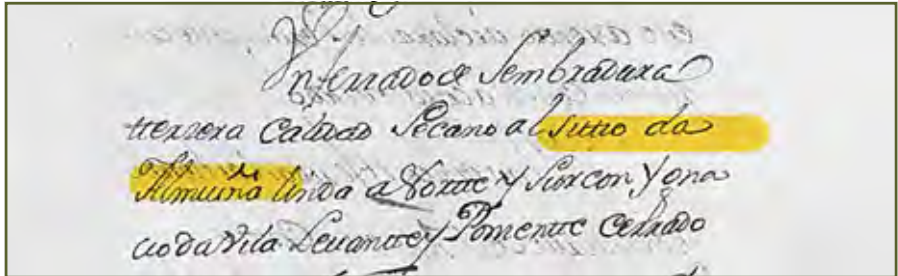 Un ferrado de Sembradura
terzera Calidad Secano al sitio da
Almuiña linda a Norte y Sur con
da Vila Levante y Poniente Cerrado